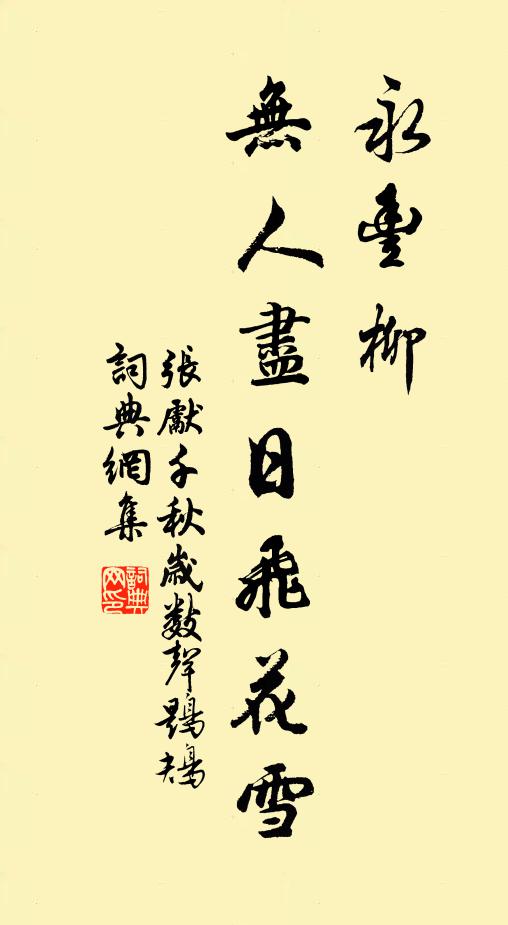 永豐柳
無人盡日飛花雪
張獻千秋歲數聲鶗鴂
詞典網集
詞典网印